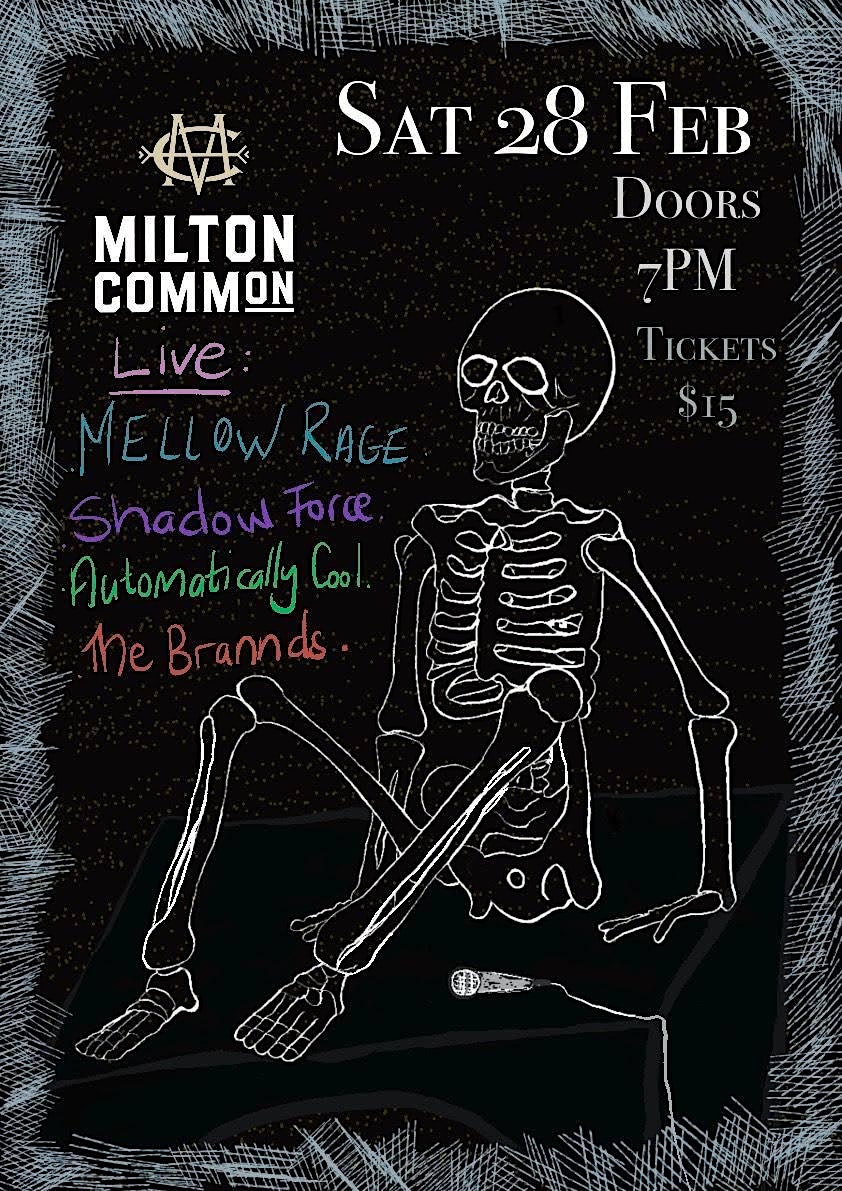 SAT 28 FEB
DOORS
7PM
TICKETS
$15
MC
MILTON
COMMON
Live:
MELLOW RAGE
Shadow Force
Automatically Cool.
The Brannds.